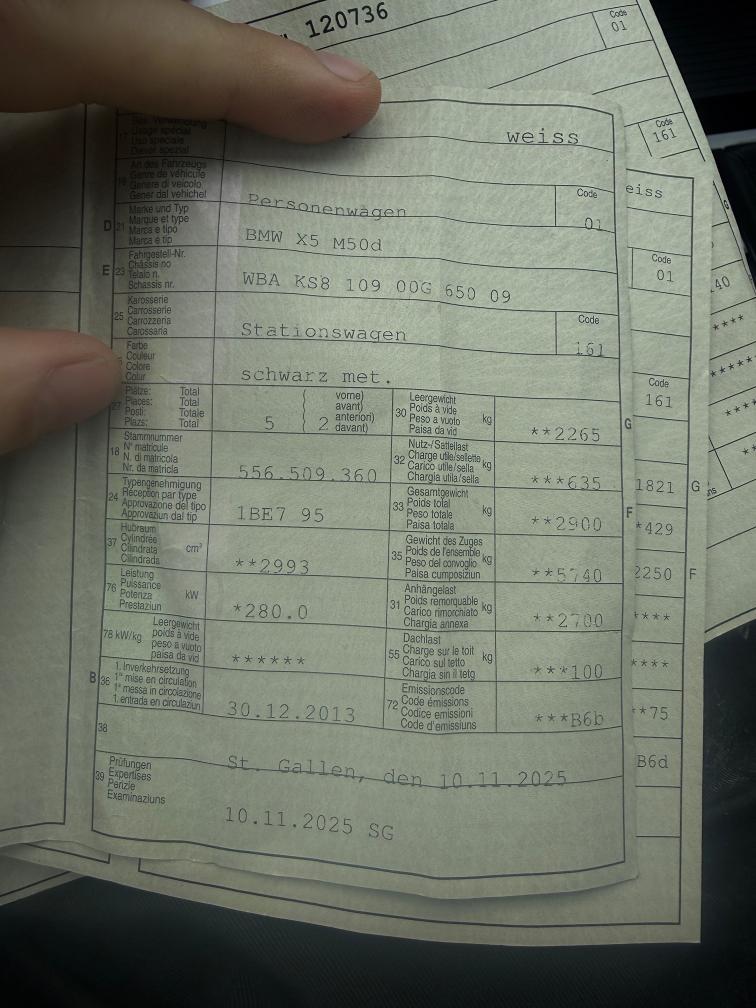 120736
Code
01
Code
161
weiss
Usage spécial
Uso speciale
Diever spezial
Art des Fahrzeugs
Genre de véhicule
Genere di veicolo
Gener dal vehichel
Personenwagen
Code
01
D 21 Marke und Typ
Marque et type
Marca e tipo
Marca e tip
BMW X5 M50d
E 23 Fahrgestell-Nr.
Châssis no
Telaio n.
Schassis nr.
WBA KS8 109 00G 650 09
25 Karosserie
Carrosserie
Carrozzeria
Carossaria
Stationswagen
Code
161
Farbe
Couleur
Colore
Colur
schwarz met.
27 Plätze: Total
Places: Total
Posti: Totale
Plazs: Total
5
2
vorne)
avant)
anteriori)
davant)
30 Leergewicht
Poids à vide
Peso a vuoto
Paisa da vid
kg
**2265
G
18 Stammnummer
N° matricule
N. di matricola
Nr. da matricla
556.509.360
32 Nutz-/Sattellast
Charge utile/sellette
Carico utile/sella
Chargia utila/sella
kg
***635
24 Typengenehmigung
Réception par type
Approvazione del tipo
Approvaziun dal tip
1BE7 95
33 Gesamtgewicht
Poids total
Peso totale
Paisa totala
kg
**2900
F
37 Hubraum
Cylindrée
Cilindrata
Cilindrada
cm³
**2993
35 Gewicht des Zuges
Poids de l'ensemble
Peso del convoglio
Paisa cumposiziun
kg
**5740
76 Leistung
Puissance
Potenza
Prestaziun
kW
*280.0
31 Anhängelast
Poids remorquable
Carico rimorchiato
Chargia annexa
kg
**2700
78 kW/kg
Leergewicht
poids à vide
peso a vuoto
paisa da vid
******
55 Dachlast
Charge sur le toit
Carico sul tetto
Chargia sin il tetg
kg
***100
B 36 1. Inverkehrsetzung
1re mise en circulation
1a messa in circolazione
1. entrada en circulaziun
30.12.2013
72 Emissionscode
Code émissions
Codice emissioni
Code d'emissiuns
***B6b
38
St. Gallen, den 10.11.2025
39 Prüfungen
Expertises
Perizie
Examinaziuns
10.11.2025 SG
eiss
Code
01
Code
161
1821 G
*429
2250 F
****
****
**75
B6d